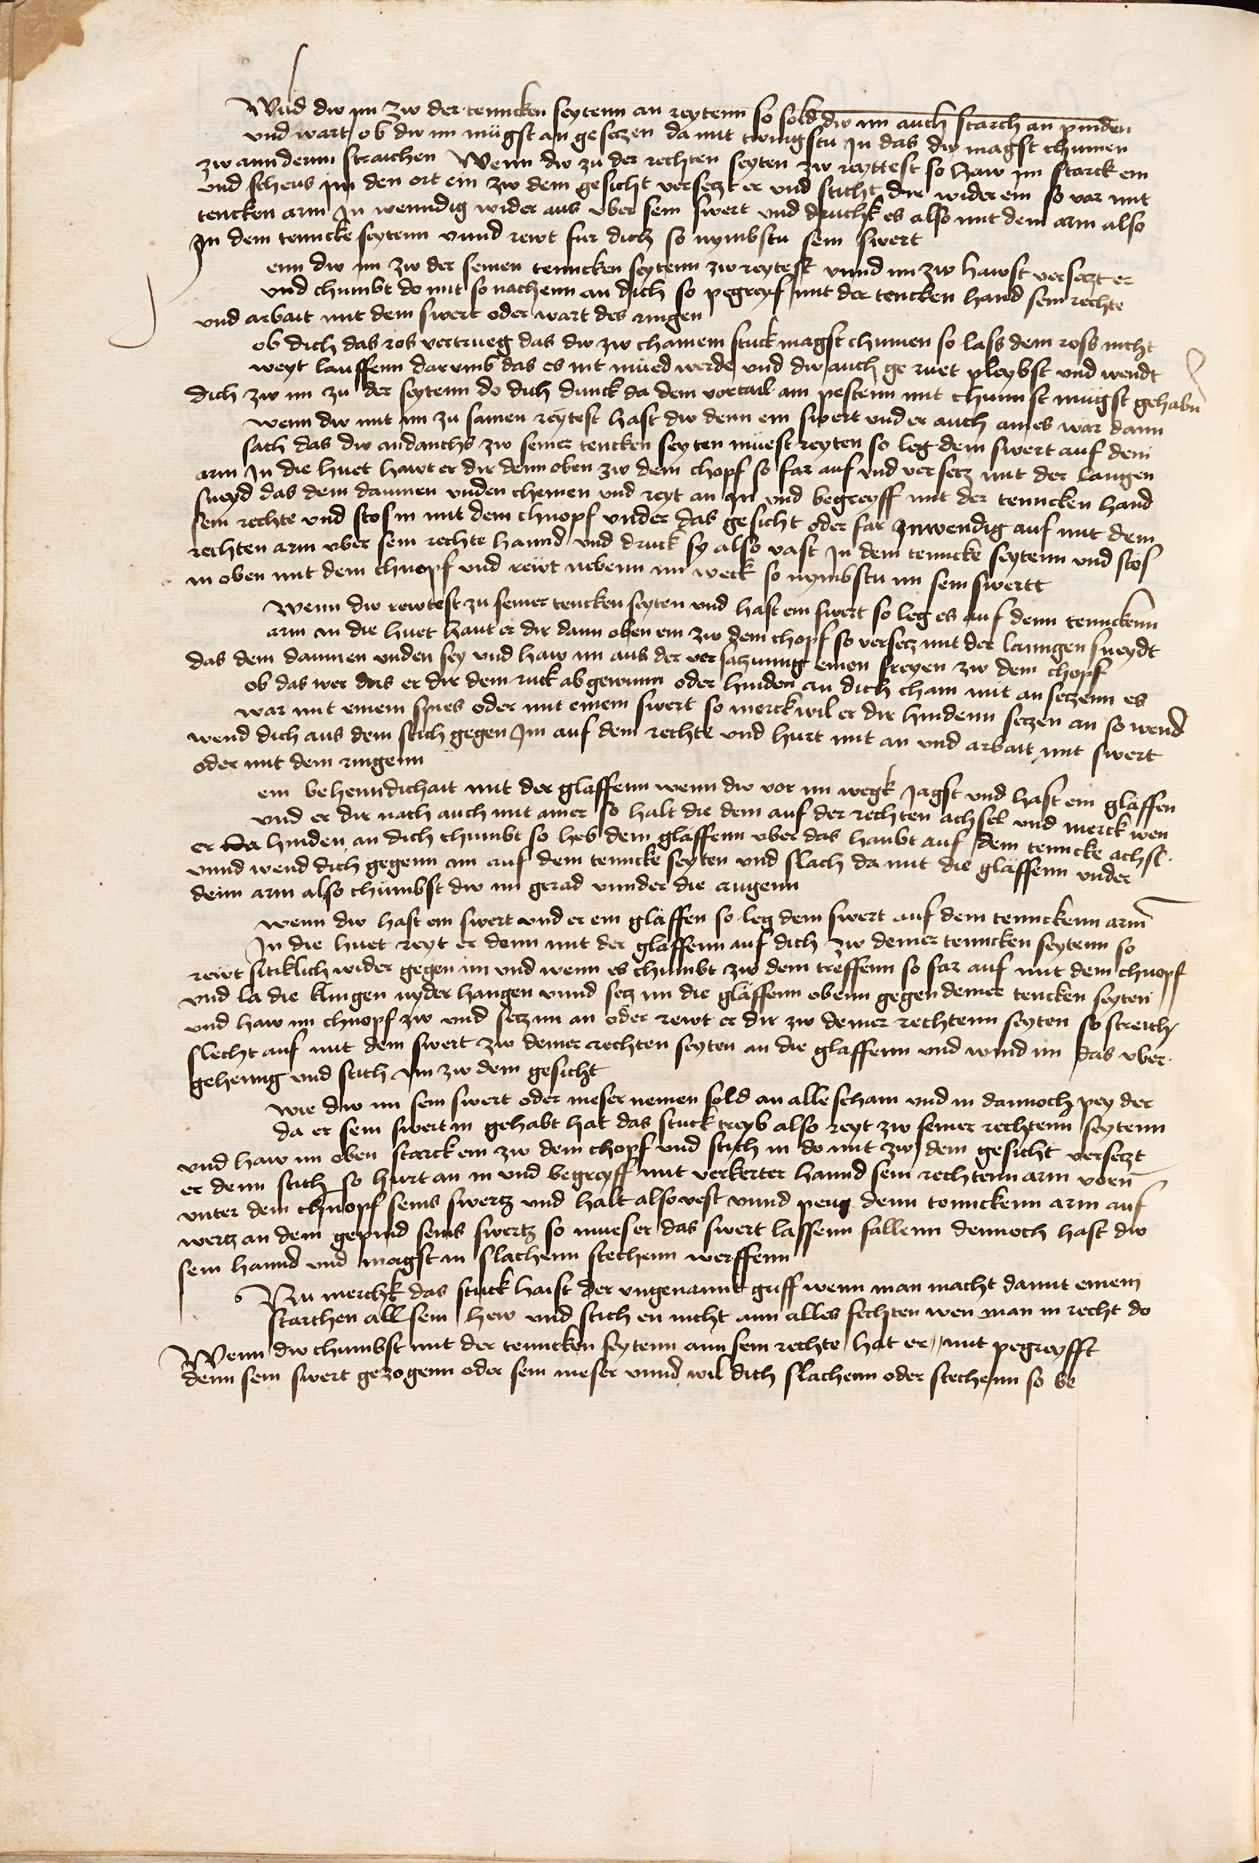 Wild dw im zw der tenncken seytenn an reytenn so sold dw im auch starch an pinden
vnd wart ob dw im mügst an gesetzen da mit twingstu Jn das dw magst chumen
zw anndernn straichen Wenn dw zu der rechten seyten zw reyttest so haw im starck ein
vnd scheus im den ort ein zw dem gesicht versetzt er vnd sticht dir wider ein so var mit
tencken arm Jn wenndig wider aus vber sein swert vnd druchk es also mit dem arm also
Jn dein tenncke seytenn vnnd rewt fur dich so nymbstu sein swert
enn dw im zw der seinen tenncken seytenn zw reytest vnnd im zw hawst versetzt er
vnd chumbt do mit so nachenn an dich so pegreyf mit der tencken hand sein rechte
vnd arbait mit dem swert oder wart des ringen
ob dich das ros vertrueg das dw zw chainem stuck magst chumen so lass dein ross nicht
weyt lauffenn darumb das es nit müed werde vnd dw auch geruet pleybst vnd wendt
dich zw im zu der seytenn do dich dunck da dein vortail am pestenn mit chunnst mügst gehabn
wenn dw mit im zu samen reytest hast dw denn ein swert vnd er auch aines wär dann
sach das dw andanchs zw seiner tencken seyten müest reyten so leg dein swert auf den
arm Jn die huet hawt er dir denn oben zw dem chopf so far auf vnd versetz mit der langen
sneyd das dein daumen vnden chemen vnd reyt an in vnd begreyff mit der tenncken hand
sein rechte vnd stos in mit dem chnopf vnder das gesicht oder far Jnwendig auf mit dem
rechten arm vber sein rechte hannd vnd druck sy also vast Jn dein tenncke seytenn vnd stos
in oben mit dem chnopf vnd rewt nebenn im weck so nymbstu im sein swertt
Wenn dw rewtest zu seiner tencken seyten vnd hast ein swert so leg es auf denn tennckenn
arm in die huet haut er dir dann oben ein zw dem chopf so versetz mit der lanngen sneydt
das dein daumen vnden sey vnd haw im aus der versatzunng einen freyen zw dem chopf
ob das wer das er dir dein ruck abgewunn oder hinden an dich cham mit an setzenn es
war mit einem spies oder mit einem swert so merck wil er dir hindenn setzen an so wend
wend dich aus dem stich gegen Jm auf dein rechte vnd hurt mit an vnd arbait mit swert
oder mit dem ringenn
ein behenndichait mit der gläffenn wenn dw vor im wegk Jagst vnd hast ein gläffen
vnd er dir nach auch mit ainer so halt die dein auf der rechten achsel vnd merck wen
er hinden an dich chumbt so heb dein gläffenn vber das haubt auf dein tenncke achsl
vnnd wend dich gegenn im auf dein tenncke seyten vnd slach da mit die gläffenn vnder
denn arm also chumbst dw im gerad vnnder die augenn
wenn dw hast ein swert vnd er ein gläffen so leg dein swert auf dein tennckenn arm
Jn die huet reyt er denn mit der gläffenn auf dich zw deiner tenncken seytenn so
rewt sitiklich wider gegen im vnd wenn es chumbt zw dem treffenn so far auf mit dem chnopf
vnd la die klingen nyder hangen vnnd setz im die gläffenn obenn gegen deiner tencken seyten
vnd haw im chnopf zw vnd setz im an oder rewt er dir zw deiner rechtenn seyten so streich
slecht auf mit dem swert zw deiner rechten seyten an die glaffenn vnd wind im das vber
geheinng vnd stich im zw dem gesicht
wie dw im sein swert oder meser nemen sold an alle scham vnd in dannoch pey der
da er sein swert in gehabt hat das stuck treyb also reyt zw seiner rechtenn seytenn
vnd haw im oben starck ein zw dem chopf vnd stich in do mit zw dem gesicht versetzt
er denn stich so hurt an in vnd begreyff mit verkerter hannd sein rechtenn arm vorn
vnter dem chnopf seins swertz vnd halt also vest vnnd peug denn tennckenn arm auf
wertz an dem gepind seins swertz so mues er das swert lassenn fallenn dennoch hast dw
sein hannd vnd magst in slachenn stechenn werffenn
Nu merchk das stuck haist der vngenannt griff wenn man macht damit einem
starchen all sein hew vnd stich en nicht ann alles fechten wen man in recht do
Wenn dw chumbst mit der tenncken seytenn ann sein rechte hat er mit pegreyfft
denn sein swert gezogenn oder sein meser vnnd wil dich slachenn oder stechenn so be